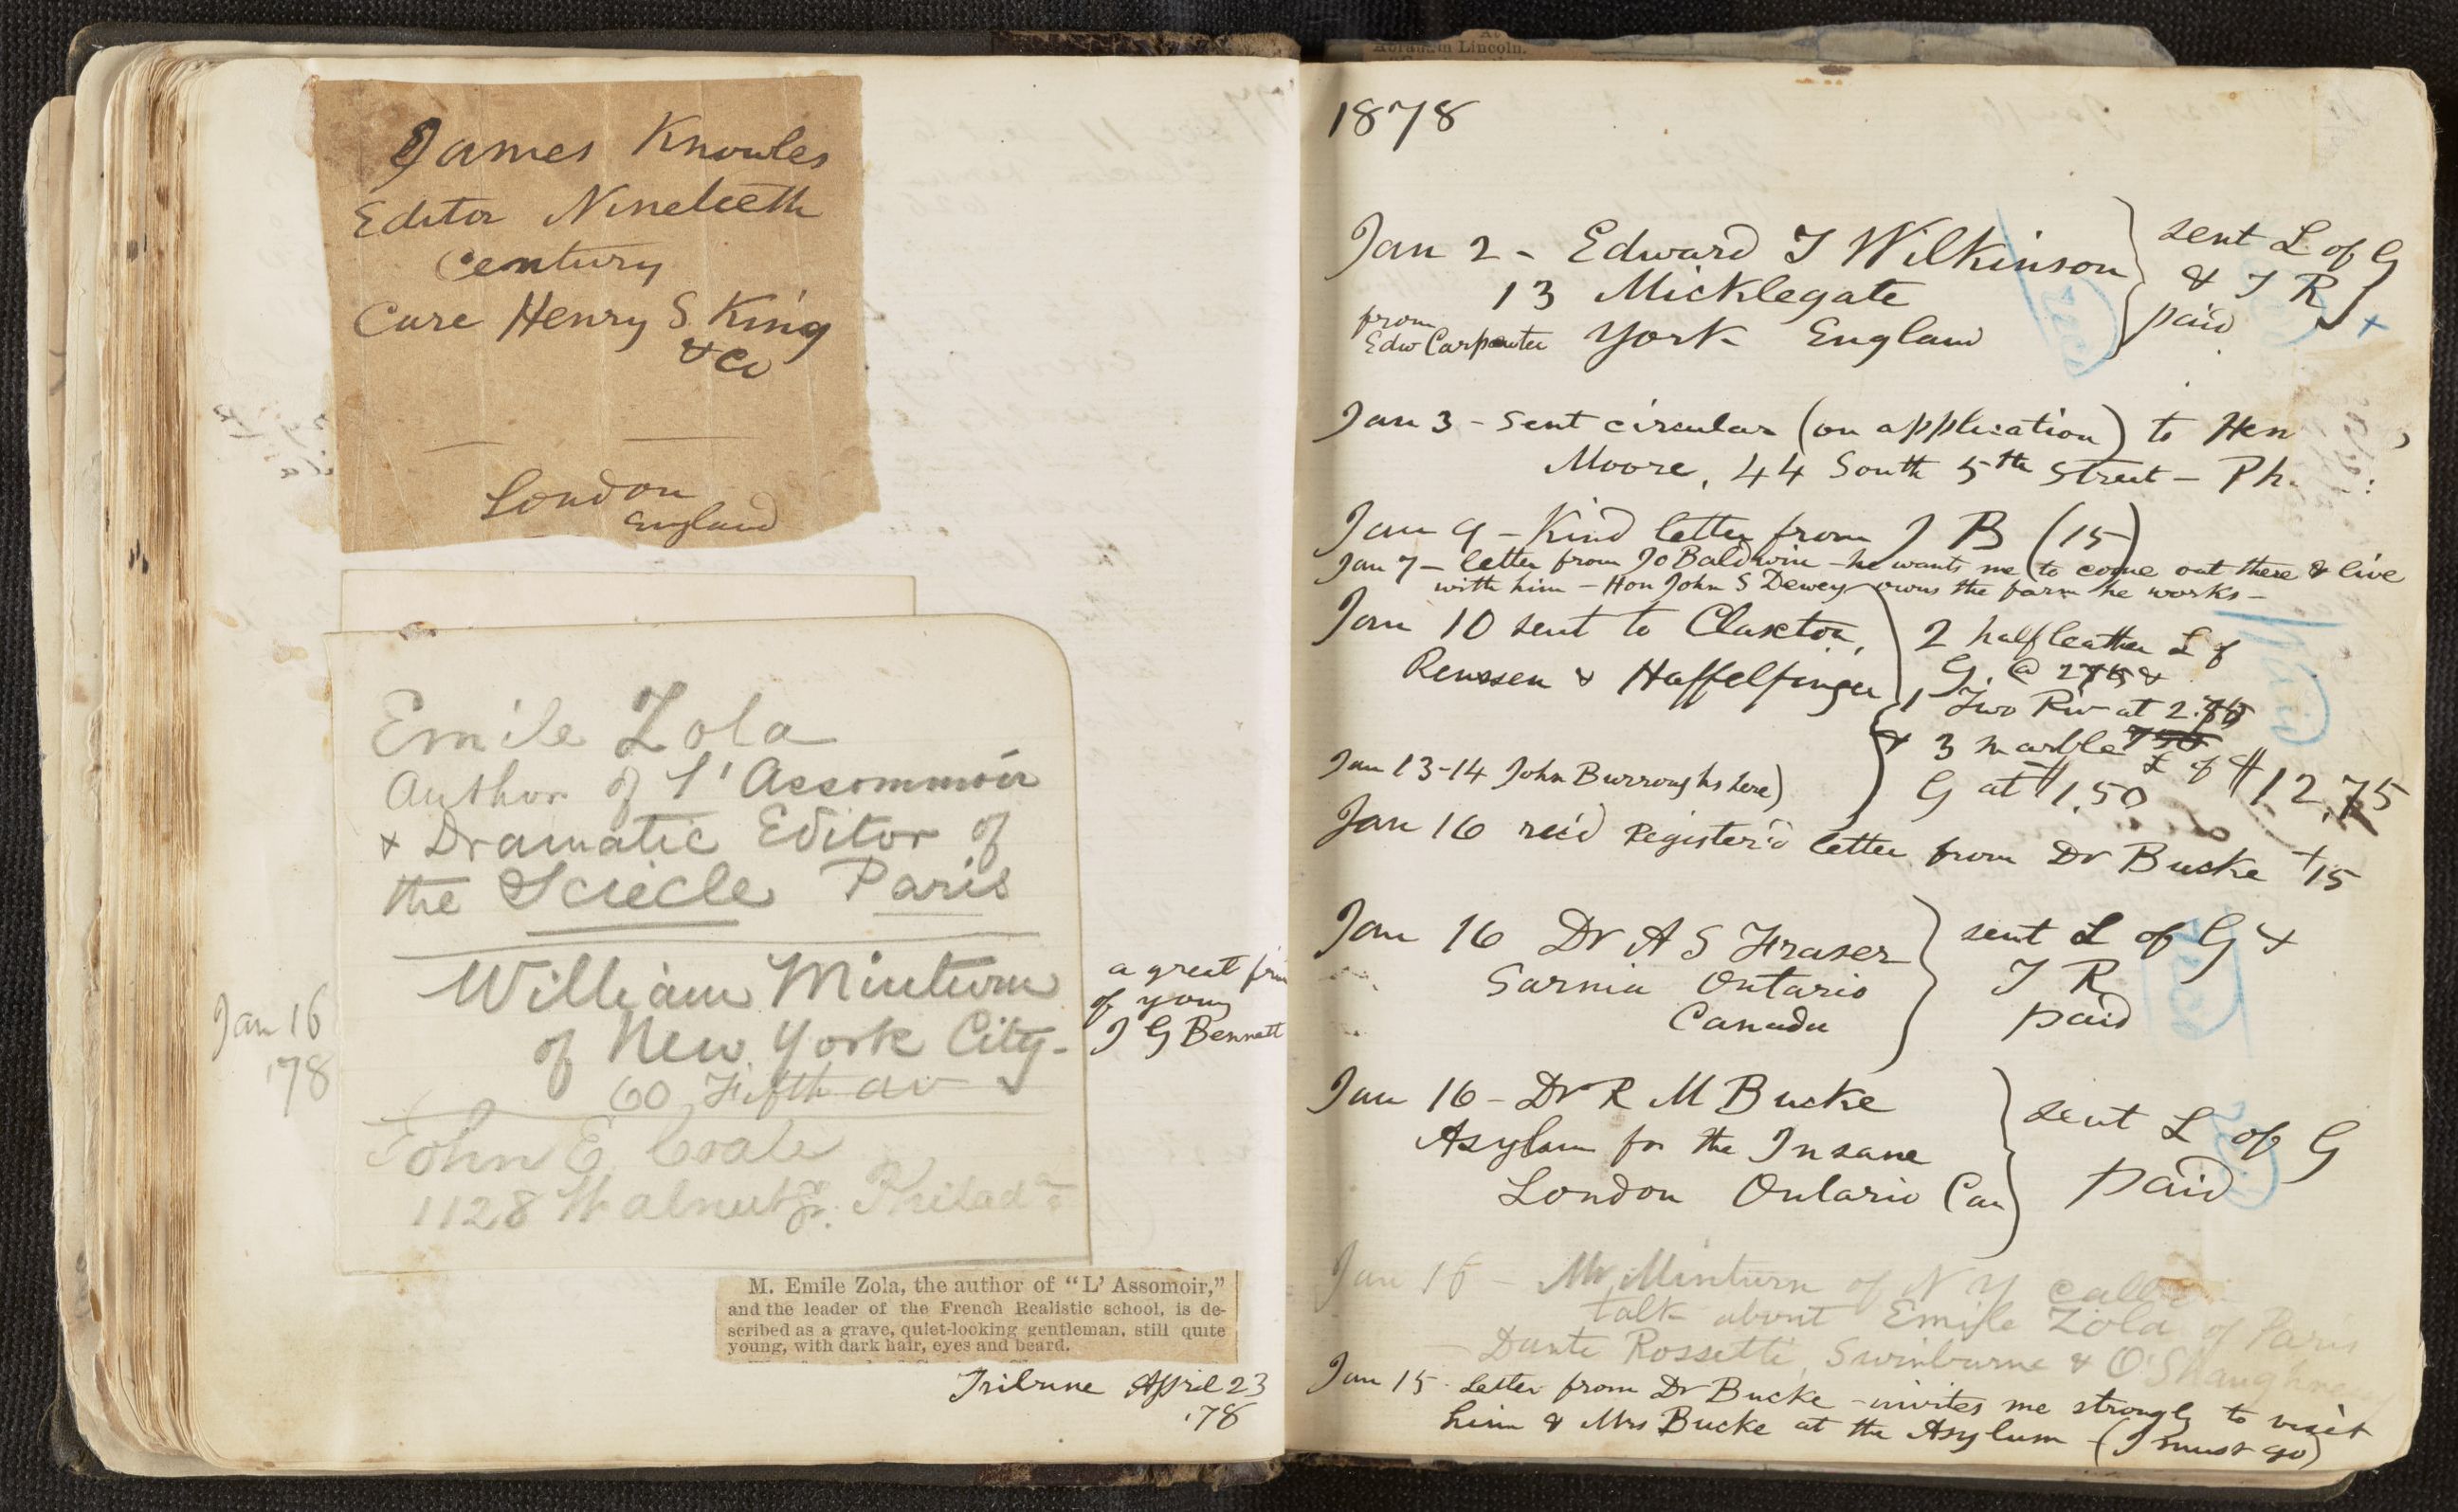 James Knowles
Editor Nineteeth
Century
Care Henry S. King
& Co
London
England
Emile Zola
Author of L'Assommoir
& Dramatic Editor of
the Sciecle Paris
William Minturn
of New York City-
60 Fifth av
John E Coale
1128 Walnut St. Philada
Jan 16
'78
a great frien
of young
J G Bennett
M. Emile Zola, the author of "L' Assomoir,"
and the leader of the French Realistic school, is de-
scribed as a grave, quiet-looking gentleman, still quite
young, with dark hair, eyes and beard.
Tribune April 23
'78
Abraham Lincoln.
1878
Jan 2 - Edward T Wilkinson
13 Micklegate
from
Edw Carpenter York England
sent L of G
& T R
paid
Jan 3 - sent circular (on application) to Hen
Moore, 44 South 5th Street - Ph.
Jan 9 - Kind letter from J B (15)
Jan 7 - letter from Jo Baldwin - he wants me to come out there & live
with him - Hon John S Dewey owns the farm he works -
Jan 10 sent to Claxton,
Remsen & Haffelfinger
2 half leather L of
G. @
1 Two Riv at 2.
& 3 marble L of
G at $1.50
$12,75
Jan 13-14 John Burroughs here)
Jan 16 rec'd Register'd letter from Dr Bucke +15
Jan 16 Dr A S Fraser
Sarnia Ontario
Canada
sent L of G &
T R
paid
Jan 16 - Dr R M Bucke
Asylum for the Insane
London Ontario Can
sent L of G
paid
Jan 16 - Mr Minturn of N Y call'd
talk about Emile Zola of Paris
- Dante Rossetti, Swinburne & O'Shaughne
Jan 15 - Letter from Dr Bucke - invites me strongly to visit
him & Mrs Bucke at the Asylum - (I must go)